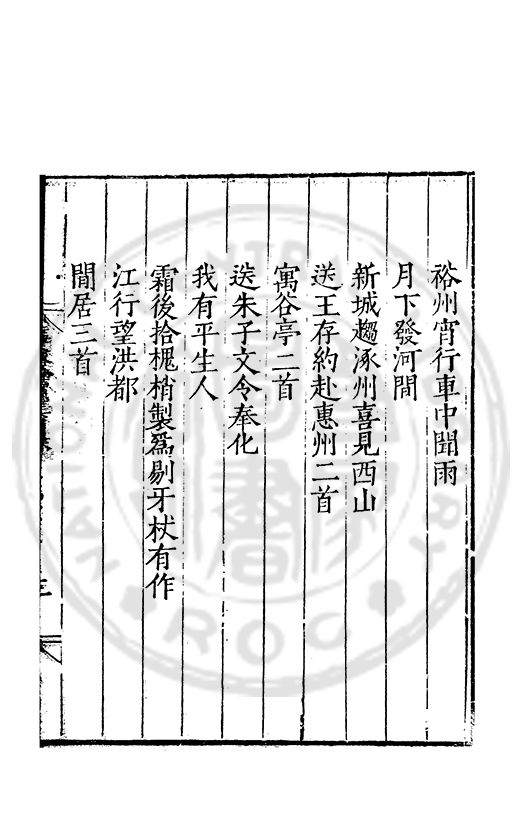 裕州宵行車中聞雨
月下發河間
新城趨涿州喜見西山
送王存約赴惠州二首
寓谷亭二首
送朱子文令奉化
我有平生人
霜後拾槐梢製爲剔牙杖有作
江行望洪都
閒居三首